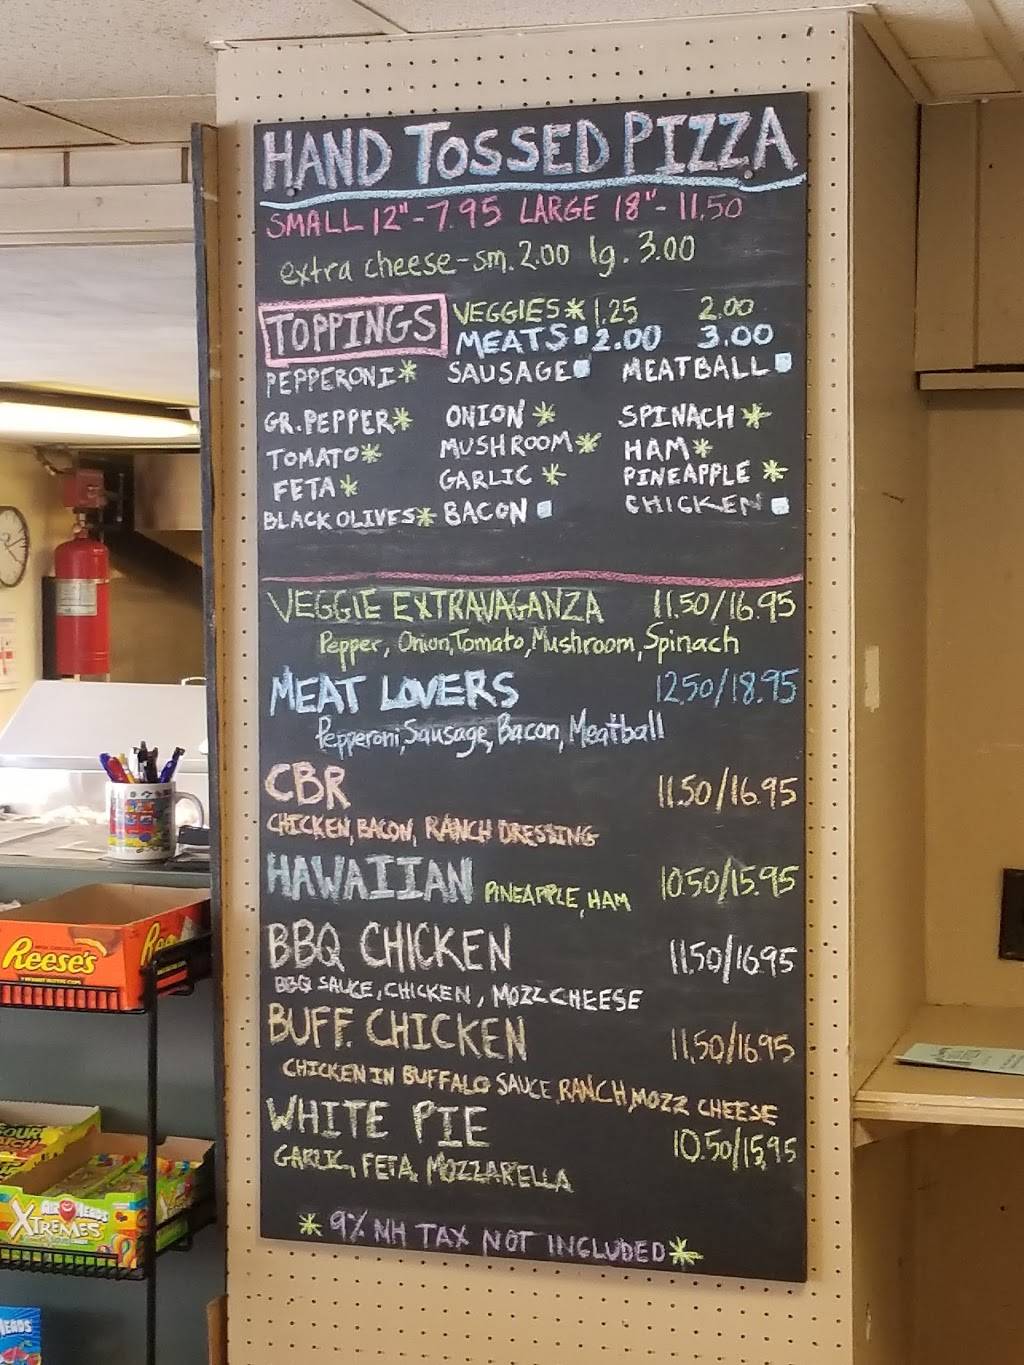 HAND TOSSED PIZZA
SMALL 12"-7.95 LARGE 18"-11.50
extra cheese-sm. 2.00 lg. 3.00
TOPPINGS
VEGGIES* 1.25 2.00
MEATS 2.00 3.00
PEPPERONI* SAUSAGE MEATBALL
GR. PEPPER* ONION* SPINACH*
TOMATO* MUSHROOM* HAM*
FETA* GARLIC* PINEAPPLE*
BLACK OLIVES* BACON CHICKEN
VEGGIE EXTRAVAGANZA 11.50/16.95
Pepper, Onion, Tomato, Mushroom, Spinach
MEAT LOVERS 12.50/18.95
Pepperoni, Sausage, Bacon, Meatball
CBR 11.50/16.95
CHICKEN, BACON, RANCH DRESSING
HAWAIIAN PINEAPPLE, HAM 10.50/15.95
BBQ CHICKEN 11.50/16.95
BBQ SAUCE, CHICKEN, MOZZ CHEESE
BUFF. CHICKEN 11.50/16.95
CHICKEN IN BUFFALO SAUCE, RANCH, MOZZ CHEESE
WHITE PIE 10.50/15.95
GARLIC, FETA, MOZZARELLA
*9% NH TAX NOT INCLUDED*
Reese's
AIRHEADS
XTREMES